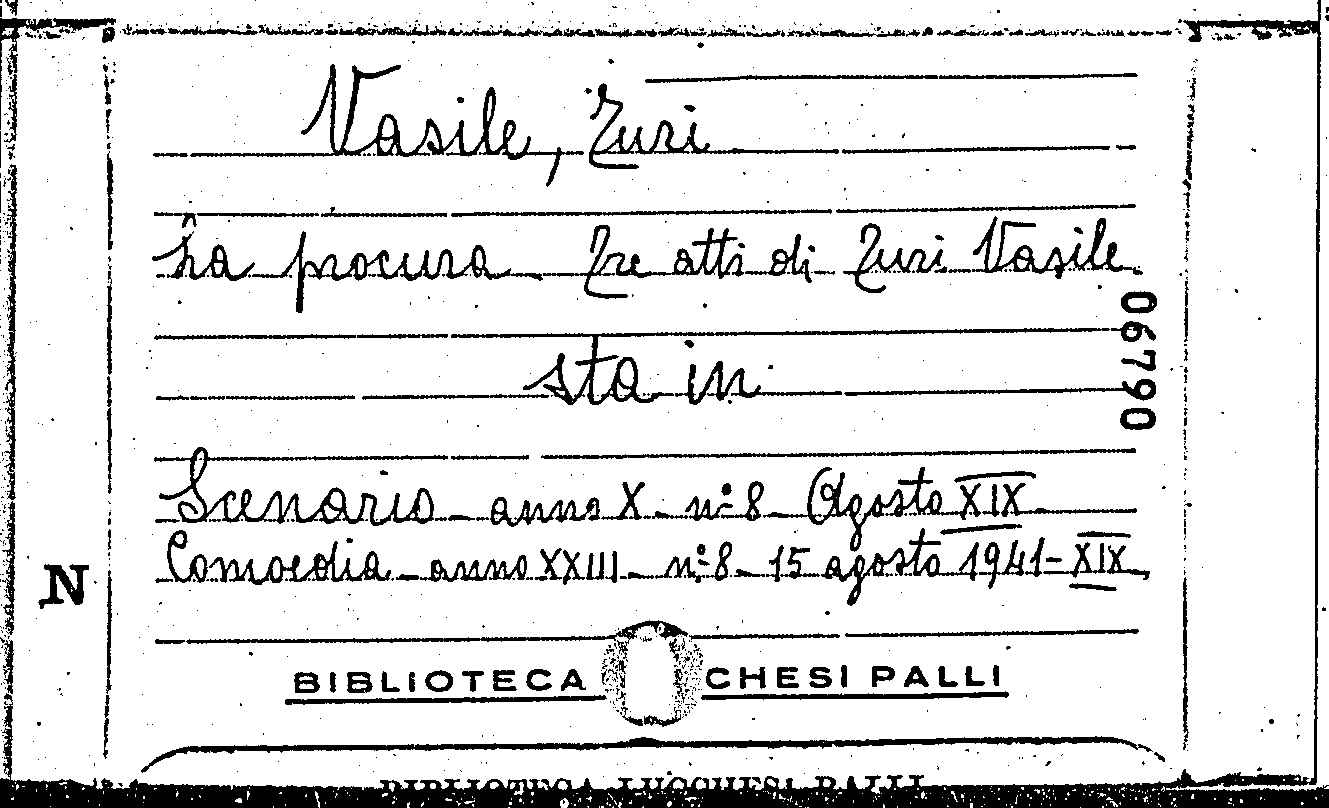 Vasile, Turi
La procura. Tre atti di Turi Vasile.
sta in
Scenario - anno X - n.º 8 - Agosto XIX -
Comoedia - anno XXIII - n.º 8 - 15 agosto 1941 - XIX -
06790
N
BIBLIOTECA CHESI PALLI
BIBLIOTECA LUCCHESI PALLI